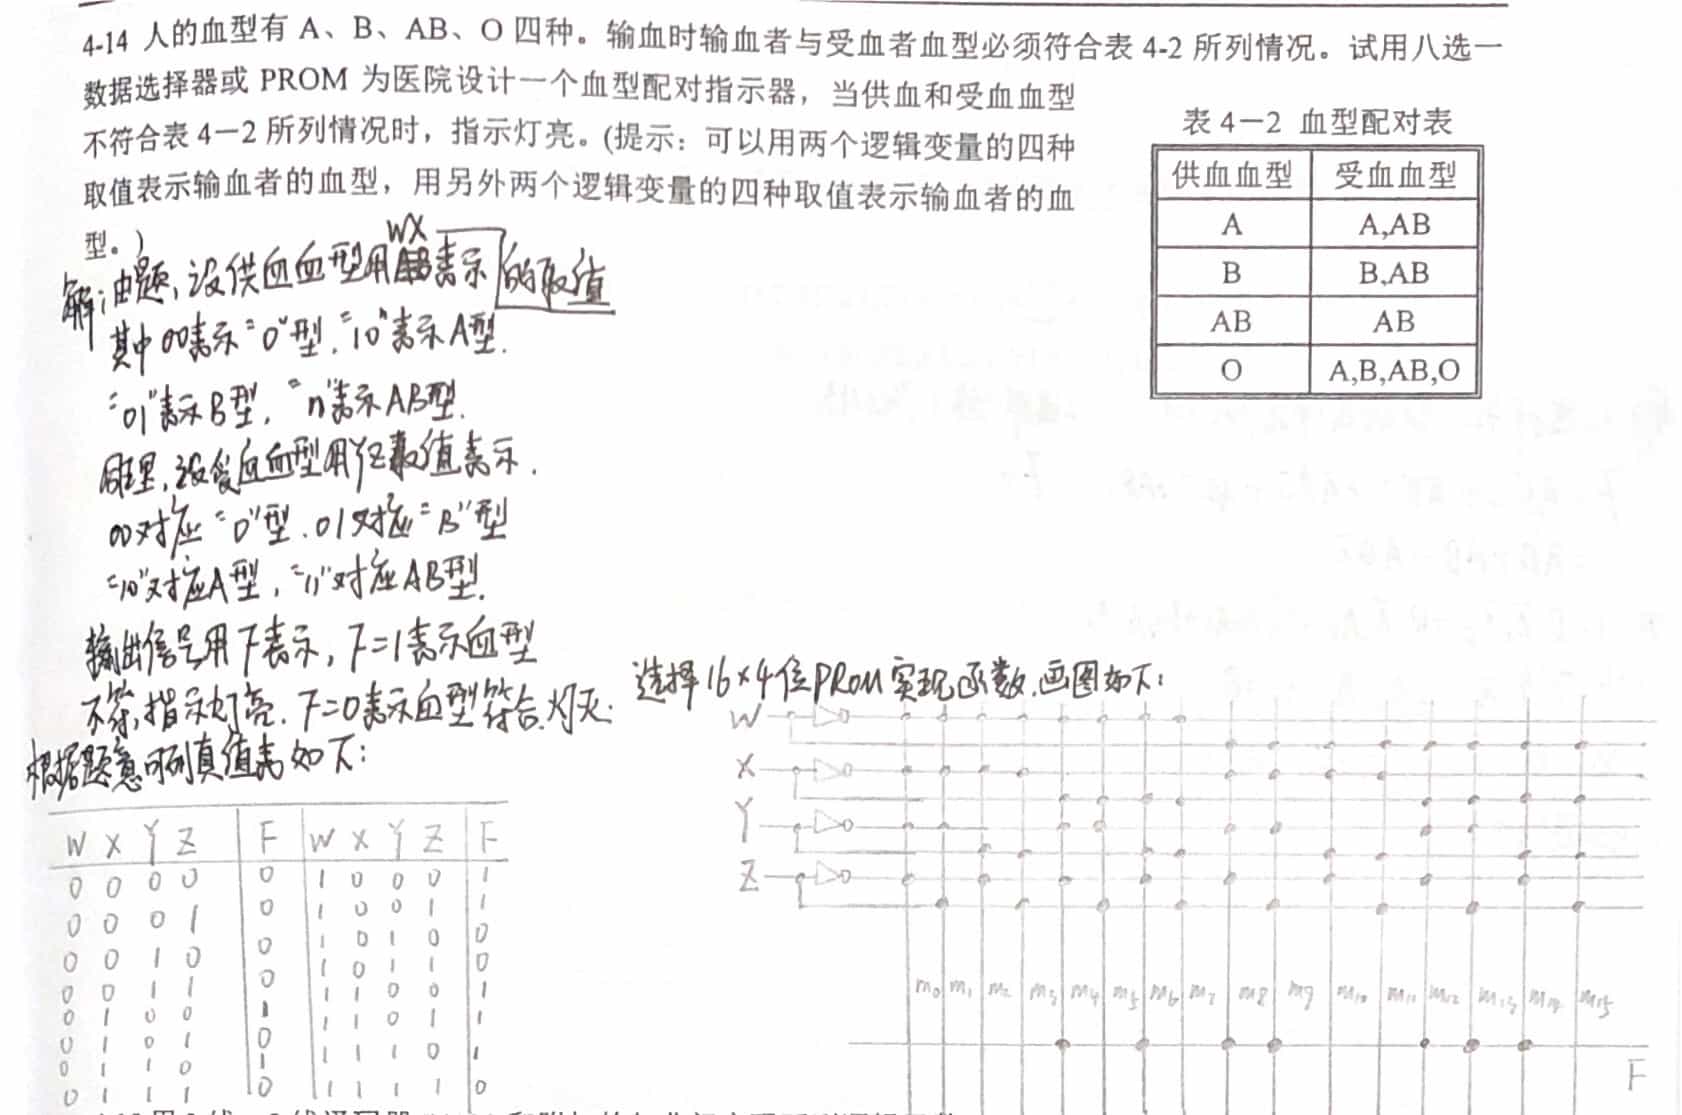 4-14 人的血型有 A、B、AB、O 四种。输血时输血者与受血者血型必须符合表 4-2 所列情况。试用八选一
数据选择器或 PROM 为医院设计一个血型配对指示器，当供血和受血血型
不符合表 4－2 所列情况时，指示灯亮。(提示：可以用两个逻辑变量的四种
取值表示输血者的血型，用另外两个逻辑变量的四种取值表示输血者的血
型。)
表 4－2 血型配对表
供血血型 受血血型
A A,AB
B B,AB
AB AB
O A,B,AB,O
WX
解：由题，设供血血型用 表示 的取值
其中00表示"O"型，"10"表示A型.
"01"表示B型，"11"表示AB型.
同理，设受血血型用YZ取值表示.
00对应"O"型.01对应"B"型
"10"对应A型，"11"对应AB型.
输出信号用F表示，F=1表示血型
不符,指示灯亮.F=0表示血型符合.灯灭.
根据题意可列真值表如下：
W X Y Z F W X Y Z F
0 0 0 0 0 1 0 0 0 1
0 0 0 1 0 1 0 0 1 1
0 0 1 0 0 1 0 1 0 0
0 0 1 1 0 1 0 1 1 0
0 1 0 0 1 1 1 0 0 1
0 1 0 1 0 1 1 0 1 1
0 1 1 0 1 1 1 1 0 1
0 1 1 1 0 1 1 1 1 0
选择16×4位PROM实现函数.画图如下：
W
X
Y
Z
m0 m1 m2 m3 m4 m5 m6 m7 m8 m9 m10 m11 m12 m13 m14 m15
F